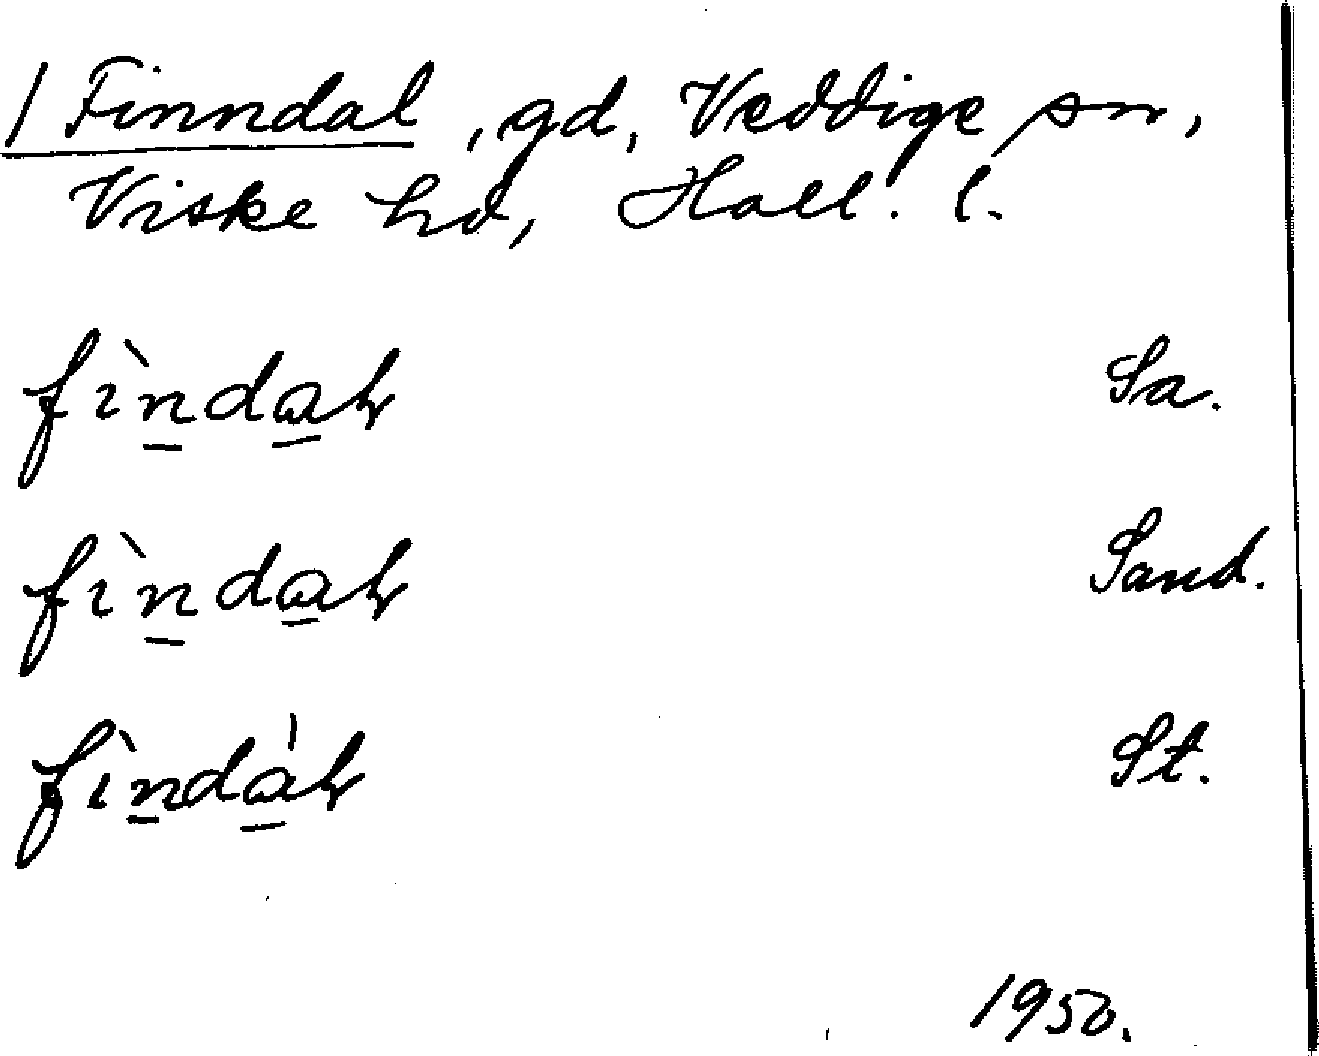 / Finndal, gd, Veddige sn,
Viske hd, Hall. l.
fìndaɫ Sa.
fìndaɫ Sand.
fìndáɫ St.
1950.